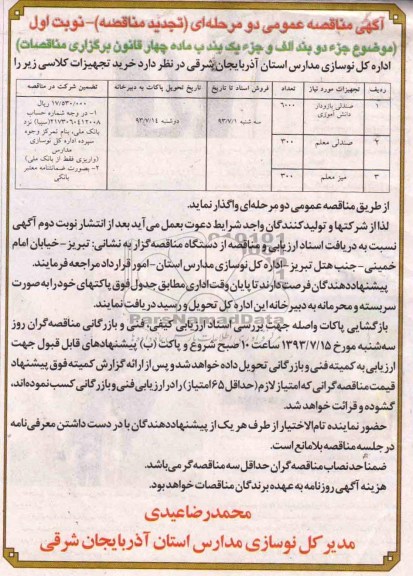 آگهی مناقصه عمومی دو مرحله‌ای (تجدید مناقصه)- نوبت اول
(موضوع جزء دو بند الف و جزء یک بند ب ماده چهار قانون برگزاری مناقصات)
اداره کل نوسازی مدارس استان آذربایجان شرقی در نظر دارد خرید تجهیزات کلاسی زیر را
ردیف تجهیزات مورد نیاز تعداد فروش اسناد تا تاریخ تاریخ تحویل پاکات به دبیرخانه تضمین شرکت در مناقصه
۱ صندلی بازودار دانش آموزی ۶۰۰۰
۲ صندلی معلم ۳۰۰
۳ میز معلم ۳۰۰
سه شنبه ۹۳/۷/۱
دوشنبه ۹۳/۷/۱۴
۱۷/۵۳۰/۰۰۰ ریال
۱- در وجه شماره حساب
۲۱۷۳۰۶۰۴۱۲۰۰۸ (سیبا) نزد
بانک ملی، بنام تمرکز وجوه
سپرده اداره کل نوسازی
مدارس
(واریزی فقط از بانک ملی)
۲- بصورت ضمانتنامه معتبر
بانکی
از طریق مناقصه عمومی دو مرحله‌ای واگذار نماید.
لذا از شرکتها و تولیدکنندگان واجد شرایط دعوت بعمل می آید بعد از انتشار نوبت دوم آگهی
نسبت به دریافت اسناد ارزیابی و مناقصه از دستگاه مناقصه گزار به نشانی: تبریز-خیابان امام
خمینی-جنب هتل تبریز-اداره کل نوسازی مدارس استان-امور قرارداد مراجعه فرمایند.
پیشنهاددهندگان فرصت دارند تا پایان وقت اداری مطابق جدول فوق پاکتهای خود را به صورت
سربسته و محرمانه به دبیرخانه این اداره کل تحویل و رسید دریافت نمایند.
بازگشایی پاکات واصله جهت بررسی اسناد ارزیابی کیفی، فنی و بازرگانی مناقصه گران روز
سه شنبه مورخ ۱۳۹۳/۷/۱۵ ساعت ۱۰ صبح شروع و پاکت (ب) پیشنهادهای قابل قبول جهت
ارزیابی به کمیته فنی و بازرگانی تحویل داده خواهد شد و پس از ارائه گزارش کمیته فوق پیشنهاد
قیمت مناقصه گرانی که امتیاز لازم (حداقل ۶۵ امتیاز) را در ارزیابی فنی و بازرگانی کسب نموده‌اند،
گشوده و قرائت خواهد شد.
حضور نماینده تام‌الاختیار از طرف هر یک از پیشنهاددهندگان با در دست داشتن معرفی‌نامه
در جلسه مناقصه بلامانع است.
ضمنا حد نصاب مناقصه گران حداقل سه مناقصه گر می‌باشد.
هزینه آگهی روزنامه به عهده برندگان مناقصات خواهد بود.
محمدرضا عیدی
مدیر کل نوسازی مدارس استان آذربایجان شرقی